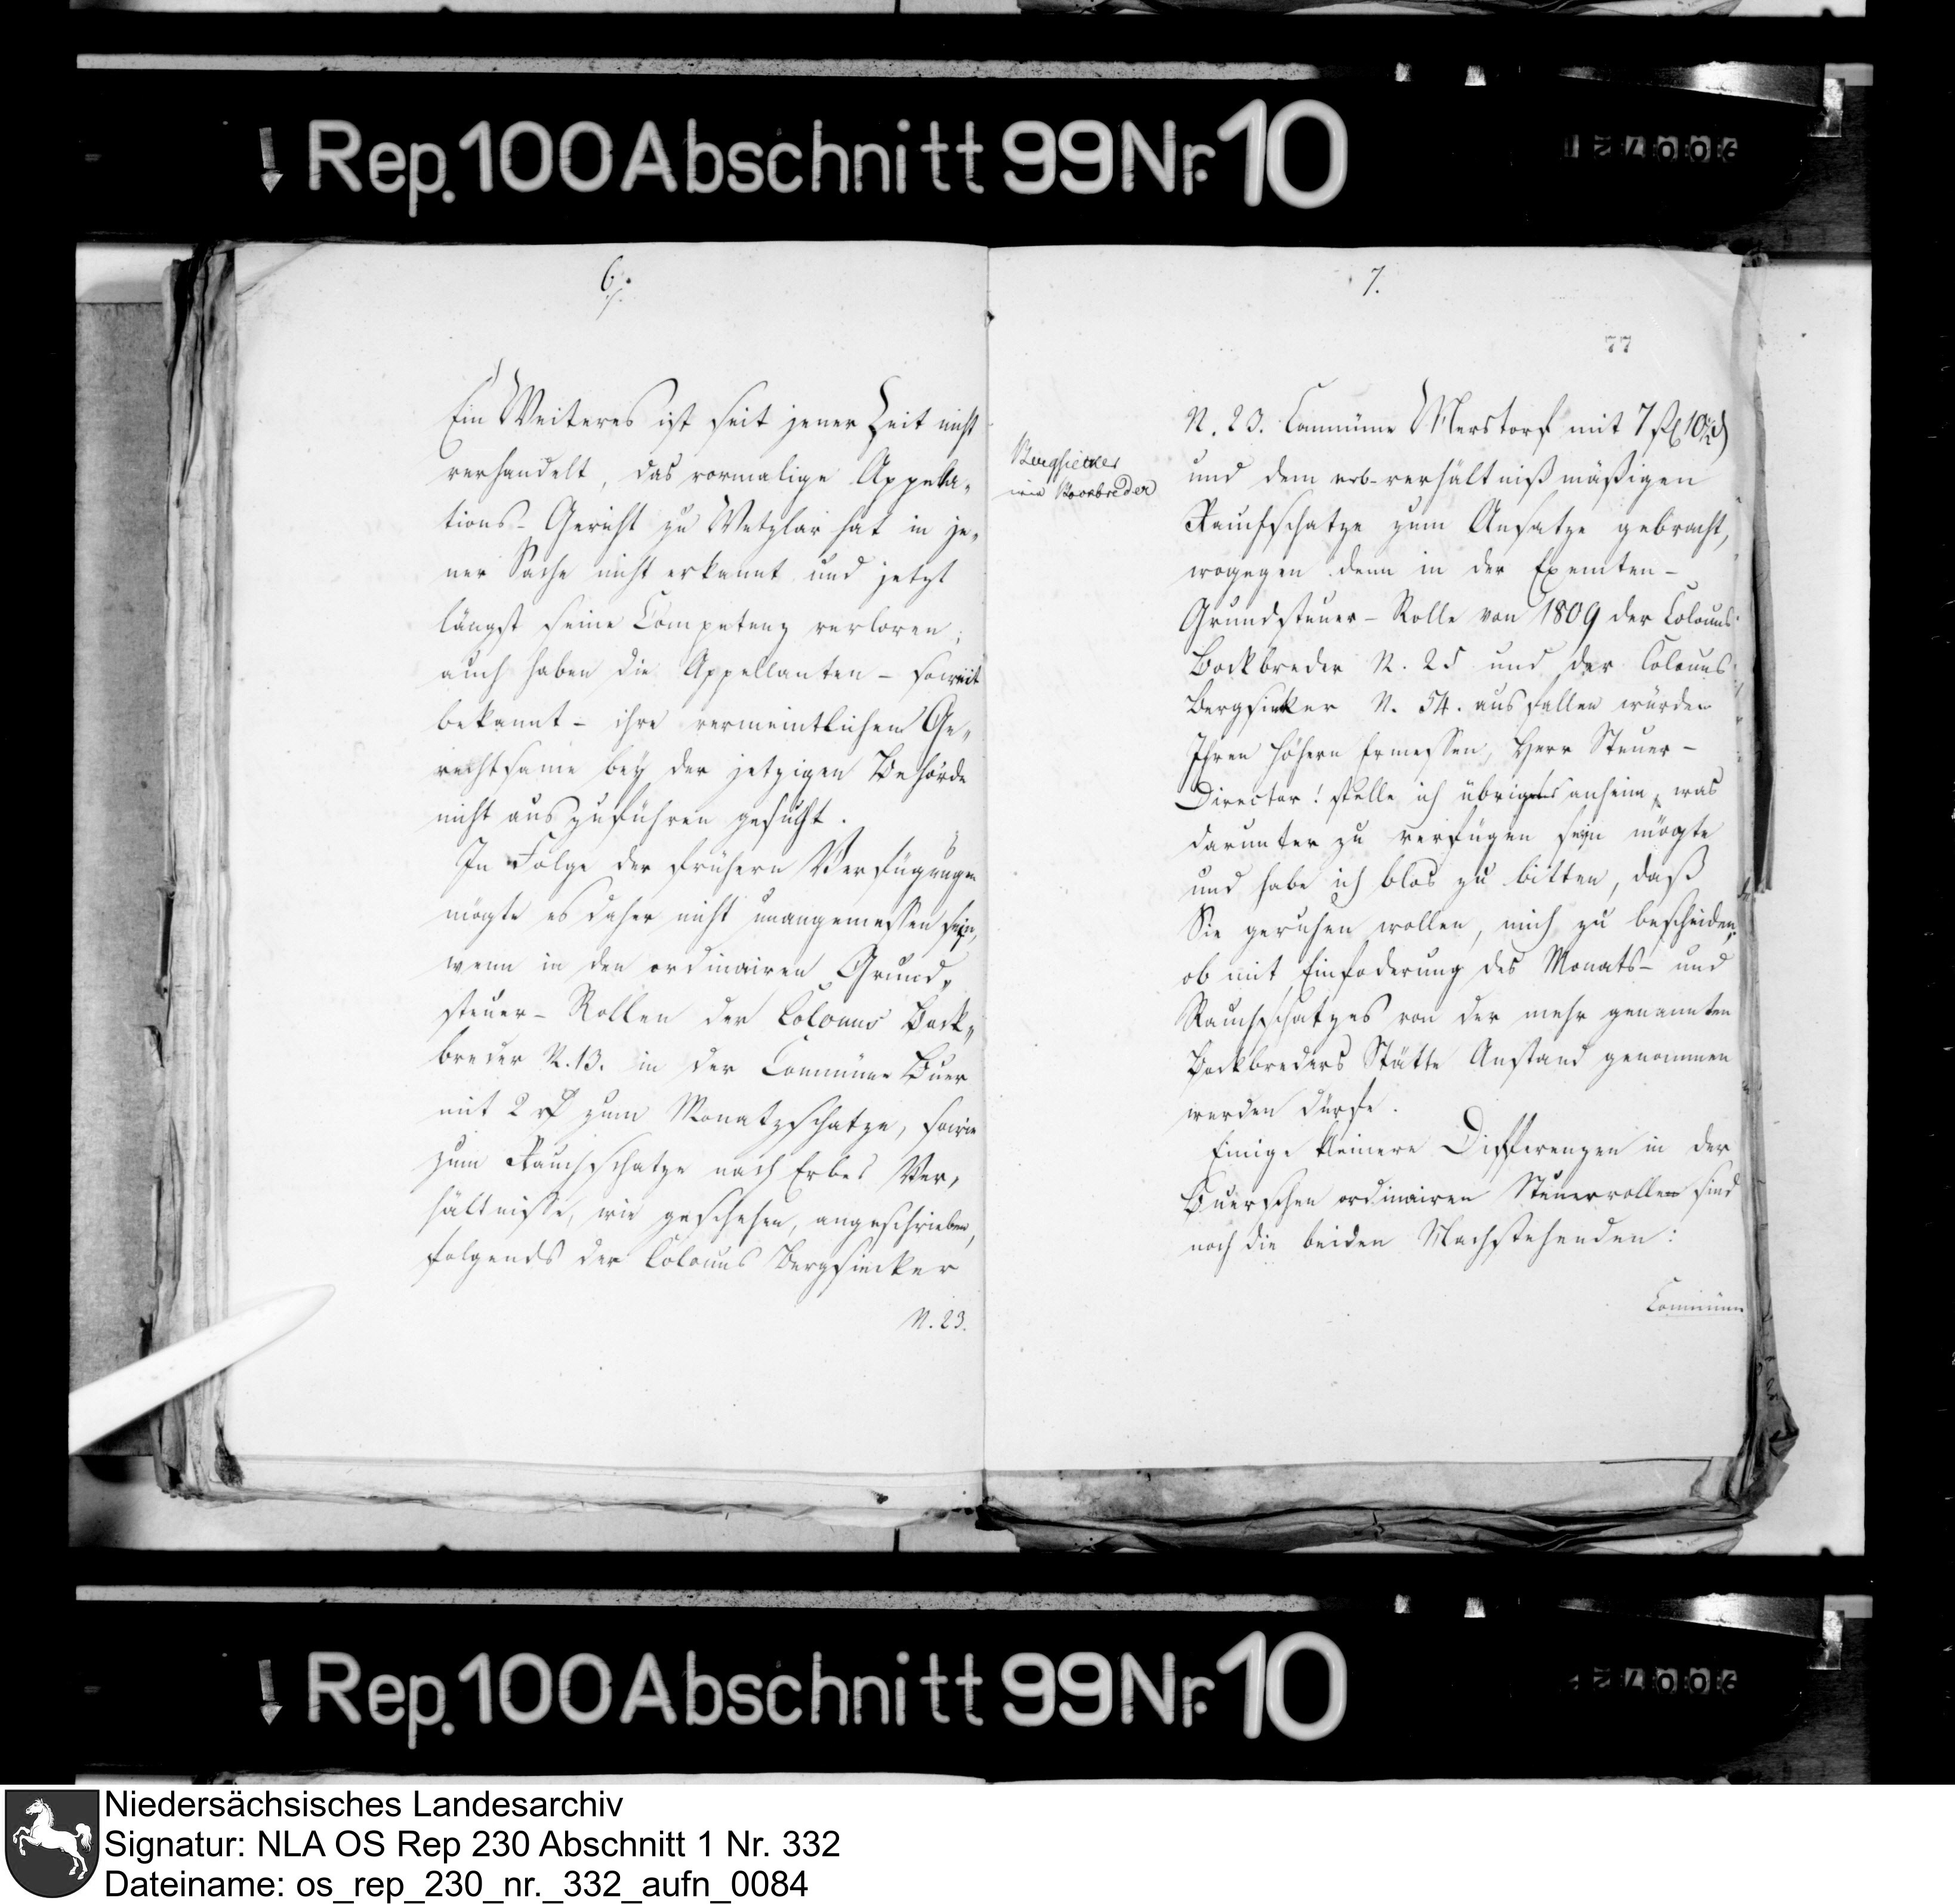 ↓ Rep. 100 Abschnitt 99 Nr. 10
6.
Ein Weiteres ist seit jener Zeit nicht
verhandelt, das vormalige Appella-
tions-Gericht zu Wetzlar hat in je-
ner Sache nicht erkannt und jetzt
längst seine Competenz verloren;
auch haben die Appellanten - soweit
bekannt - ihre vermeintlichen Ge-
rechtsame bey der jetzigen Behörde
nicht auszuführen gesucht.
In Folge der frühern Verfügungen
mögte es daher nicht unangemessen sein,
wenn in den ordinairen Grund-
steuer-Rollen der Colonus Bock-
breder N. 13. in der Commüne Buer
mit 2 rt zum Monatzschatze, sowie
zum Rauchschatze nach Erbes Ver-
hältnisse, wie geschehen, angeschrieben,
folgends der Colonus Bergsiecker
N. 23.
7.
77
Bergsieker
wie Bockbreder
N. 23. Commüne Merstorf mit 7 ßl 10½ d
und dem erb-verhältnißmäßigen
Rauchschatze zum Ansatze gebracht,
wogegen denn in der Exemten-
Grundsteuer-Rolle von 1809 der Colonus
Bockbreder N. 25 und der Colonus
Bergsieker N. 54. ausfallen würden
Ihren höhern Ermessen, Herr Steuer-
Director! stelle ich übrigens anheim, was
darunter zu verfügen sein mögte
und habe ich blos zu bitten, daß
Sie geruhen wollen, mich zu bescheiden,
ob mit Einfoderung des Monats- und
Rauchschatzes von der mehr genannten
Bockbreders Stätte Anstand genommen
werden dürfe.
Einige kleinere Differenzen in der
Buerschen ordinairen Steuerrollen sind
noch die beiden Nachstehenden:
Commüne
↓ Rep. 100 Abschnitt 99 Nr. 10
Niedersächsisches Landesarchiv
Signatur: NLA OS Rep 230 Abschnitt 1 Nr. 332
Dateiname: os_rep_230_nr._332_aufn_0084